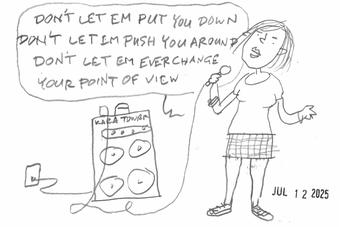 DON'T LET EM PUT YOU DOWN
DON'T LET IM PUSH YOU AROUND
DON'T LET EM EVER CHANGE
YOUR POINT OF VIEW
KARA TOWER
JUL 12 2025